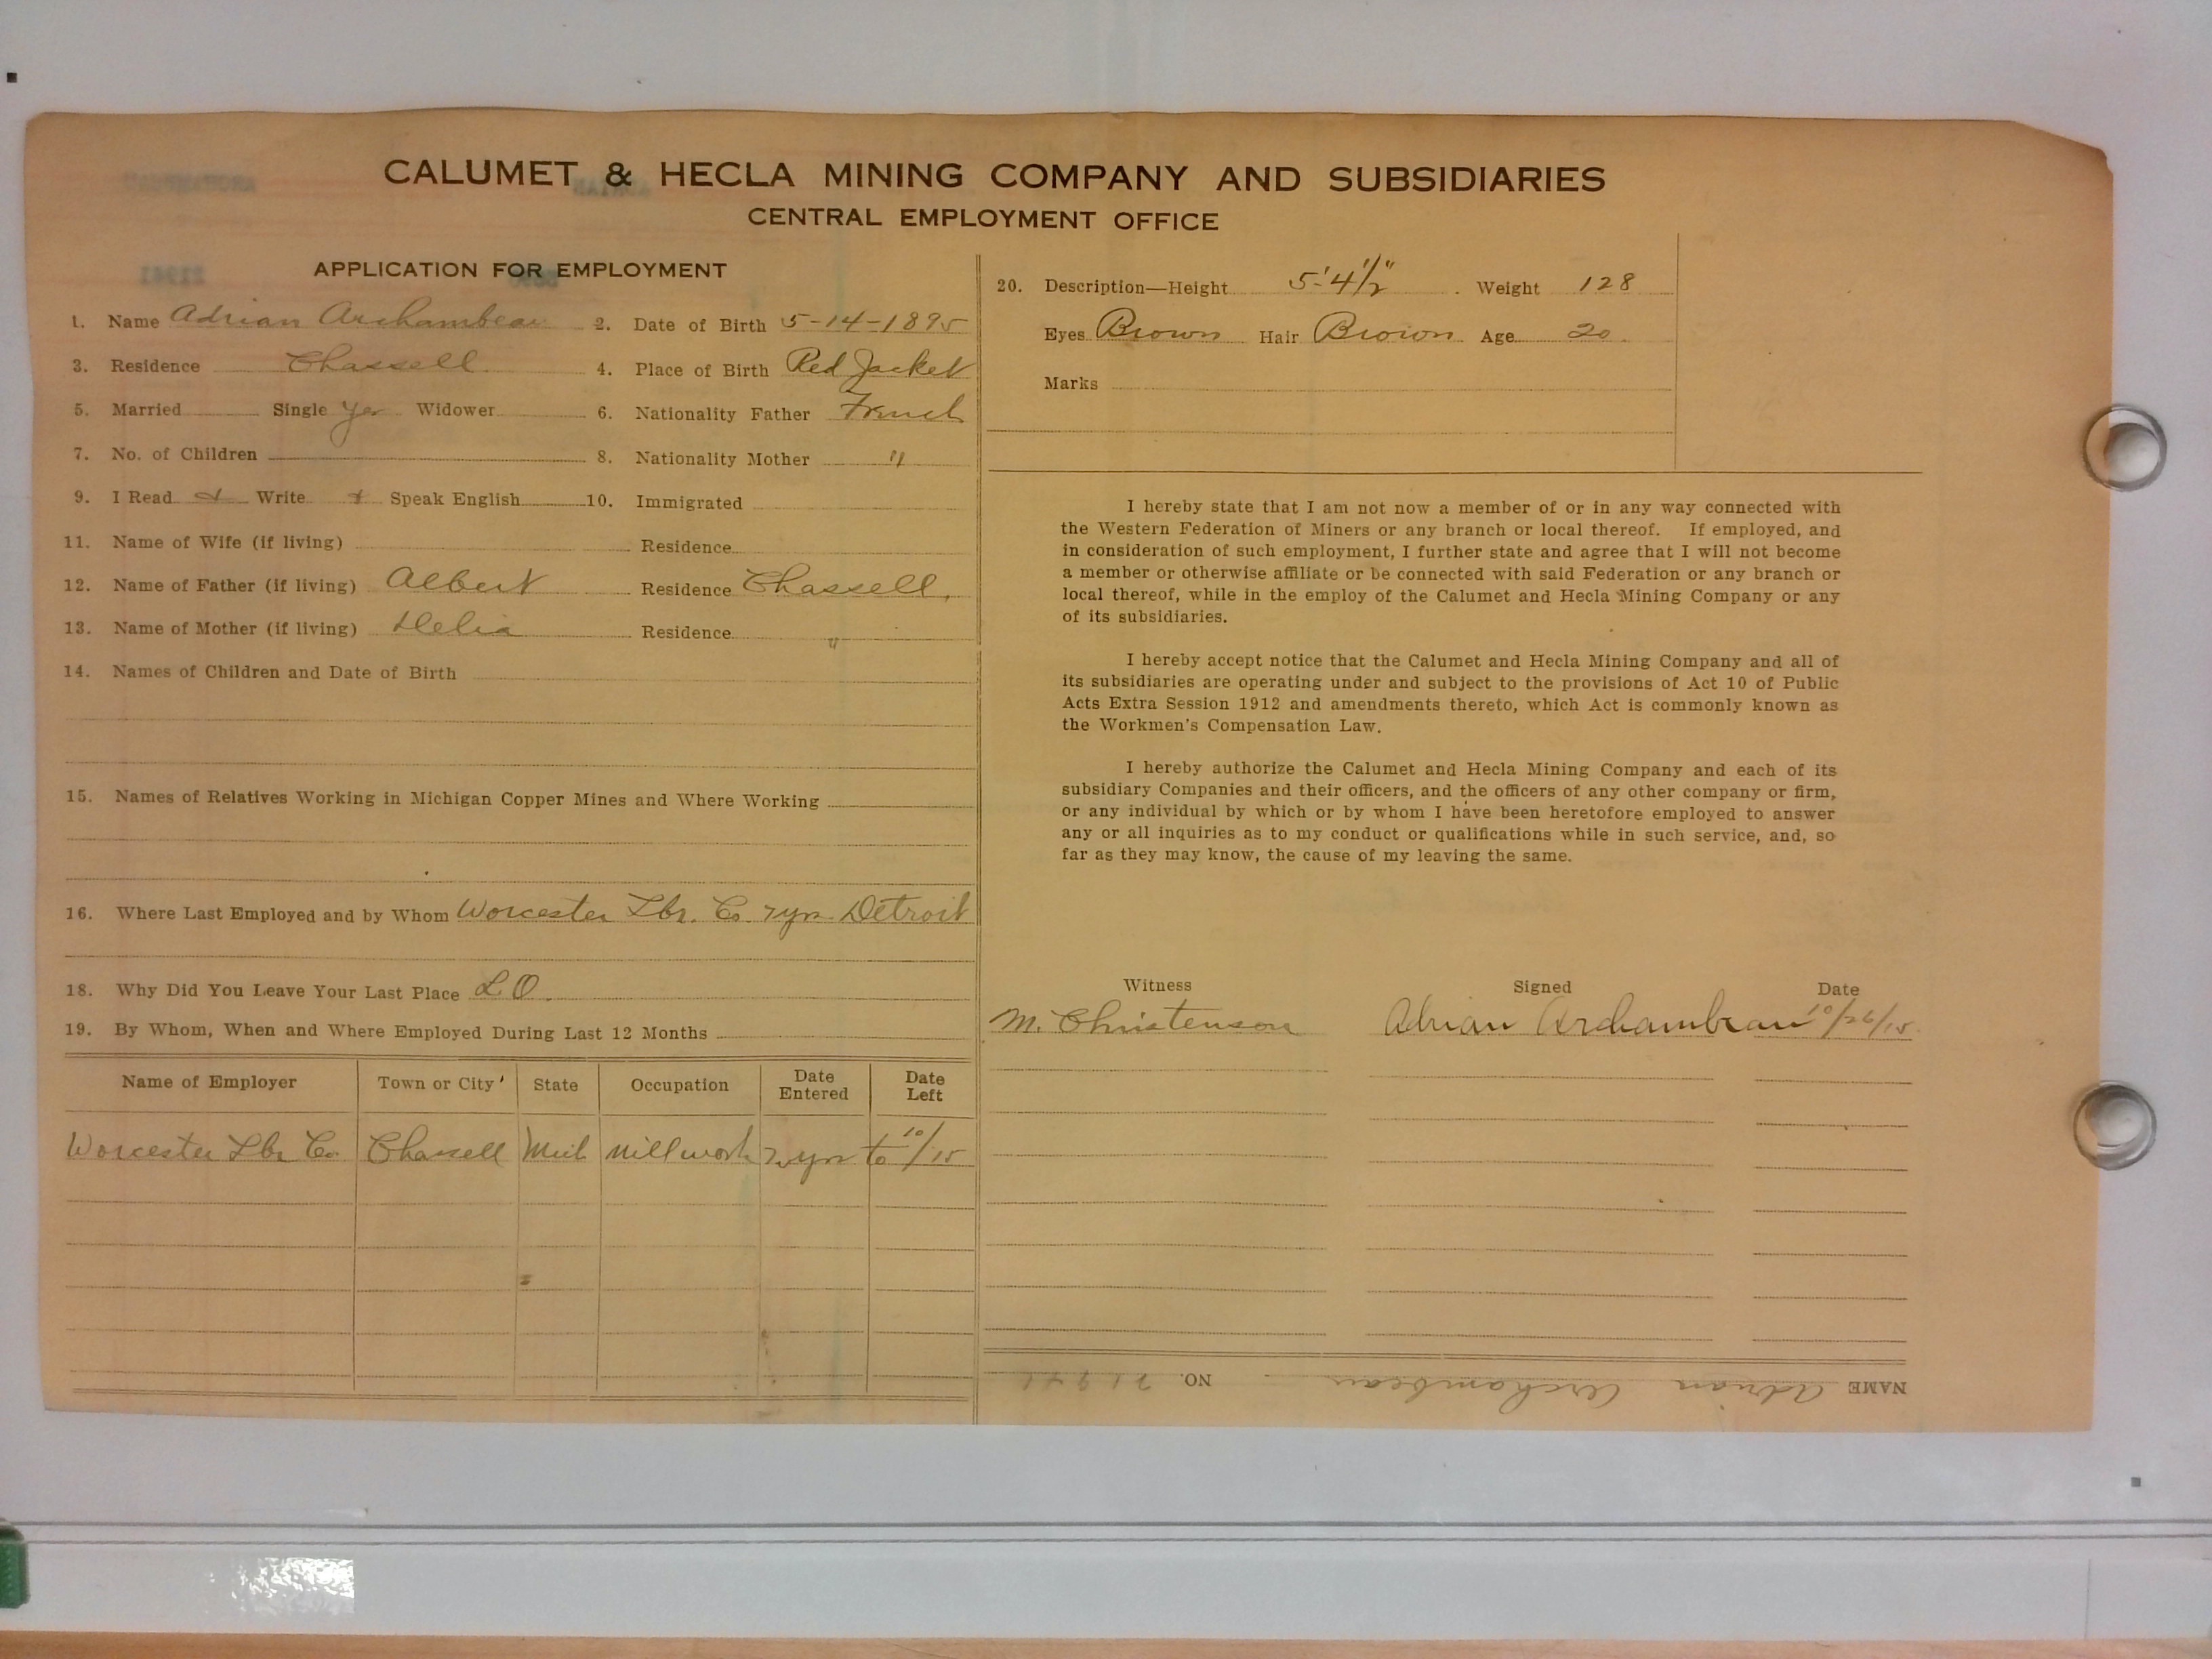 CALUMET & HECLA MINING COMPANY AND SUBSIDIARIES
CENTRAL EMPLOYMENT OFFICE
APPLICATION FOR EMPLOYMENT
1. Name Adrian Archambeau 2. Date of Birth 5-14-1895
3. Residence Chassell 4. Place of Birth Red Jacket
5. Married Single Yes Widower 6. Nationality Father French
7. No. of Children 8. Nationality Mother "
9. I Read & Write + Speak English 10. Immigrated
11. Name of Wife (if living) Residence
12. Name of Father (if living) Albert Residence Chassell.
13. Name of Mother (if living) Delia Residence "
14. Names of Children and Date of Birth
15. Names of Relatives Working in Michigan Copper Mines and Where Working
16. Where Last Employed and by Whom Worcester Lbr. Co. Detroit
18. Why Did You Leave Your Last Place L O.
19. By Whom, When and Where Employed During Last 12 Months
Name of Employer Town or City State Occupation Date Entered Date Left
Worcester Lbr Co. Chassell Mich millwork to 10/15
20. Description—Height 5'4 1/2" Weight 128
Eyes Brown Hair Brown Age 20.
Marks
I hereby state that I am not now a member of or in any way connected with
the Western Federation of Miners or any branch or local thereof. If employed, and
in consideration of such employment, I further state and agree that I will not become
a member or otherwise affiliate or be connected with said Federation or any branch or
local thereof, while in the employ of the Calumet and Hecla Mining Company or any
of its subsidiaries.
I hereby accept notice that the Calumet and Hecla Mining Company and all of
its subsidiaries are operating under and subject to the provisions of Act 10 of Public
Acts Extra Session 1912 and amendments thereto, which Act is commonly known as
the Workmen's Compensation Law.
I hereby authorize the Calumet and Hecla Mining Company and each of its
subsidiary Companies and their officers, and the officers of any other company or firm,
or any individual by which or by whom I have been heretofore employed to answer
any or all inquiries as to my conduct or qualifications while in such service, and, so
far as they may know, the cause of my leaving the same.
Witness Signed Date
M. Christenson Adrian Archambeau 10/26/15
NAME Adrian Archambeau NO. 21941